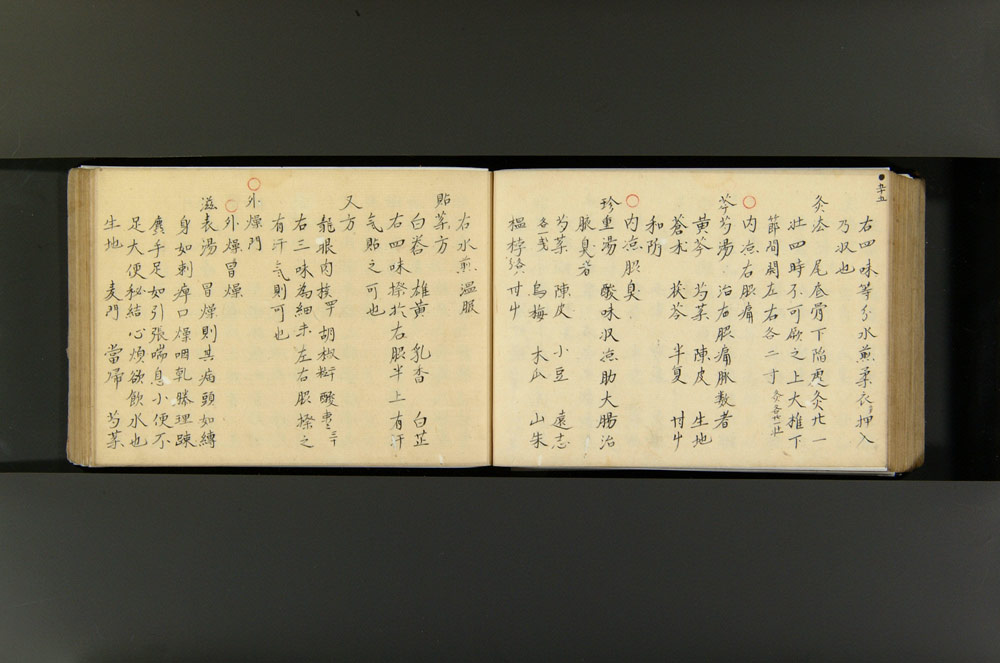 五十五
右四味等分水煎藁衣手押入
乃収也
灸法 尾底骨下陥更灸廿一
壮四時不可厥之上大椎下
節間開左右各二寸灸各廿一壮
○内凉右脹痛
芩芍湯 治右脹痛脉数者
黄芩 芍藥 陳皮 生地
蒼朮 茯苓 半夏 甘屮
和防
○内凉脹臭
珍重湯 酸味収凉助大腸治
腋臭者
芍藥 陳皮 小豆 遠志
各一戔 烏梅 木瓜 山朱
榲桲 甘屮
右水煎温服
貼藥方
白礬 雄黄 乳香 白芷
右四味搽於右脹半上有汗
气貼之可也
又方
龍眼肉 胡椒 酸棗
右三味為細末左右脹搽之
有汗气則可也
○外燥門
○外燥冒燥
滋表湯 冒燥則其病頭如縛
身如刺痺口燥咽乾腠理踈
麂手足如引張喘息小便不
足大便秘結心煩欲飲水也
生地 麦門 當帰 芍藥